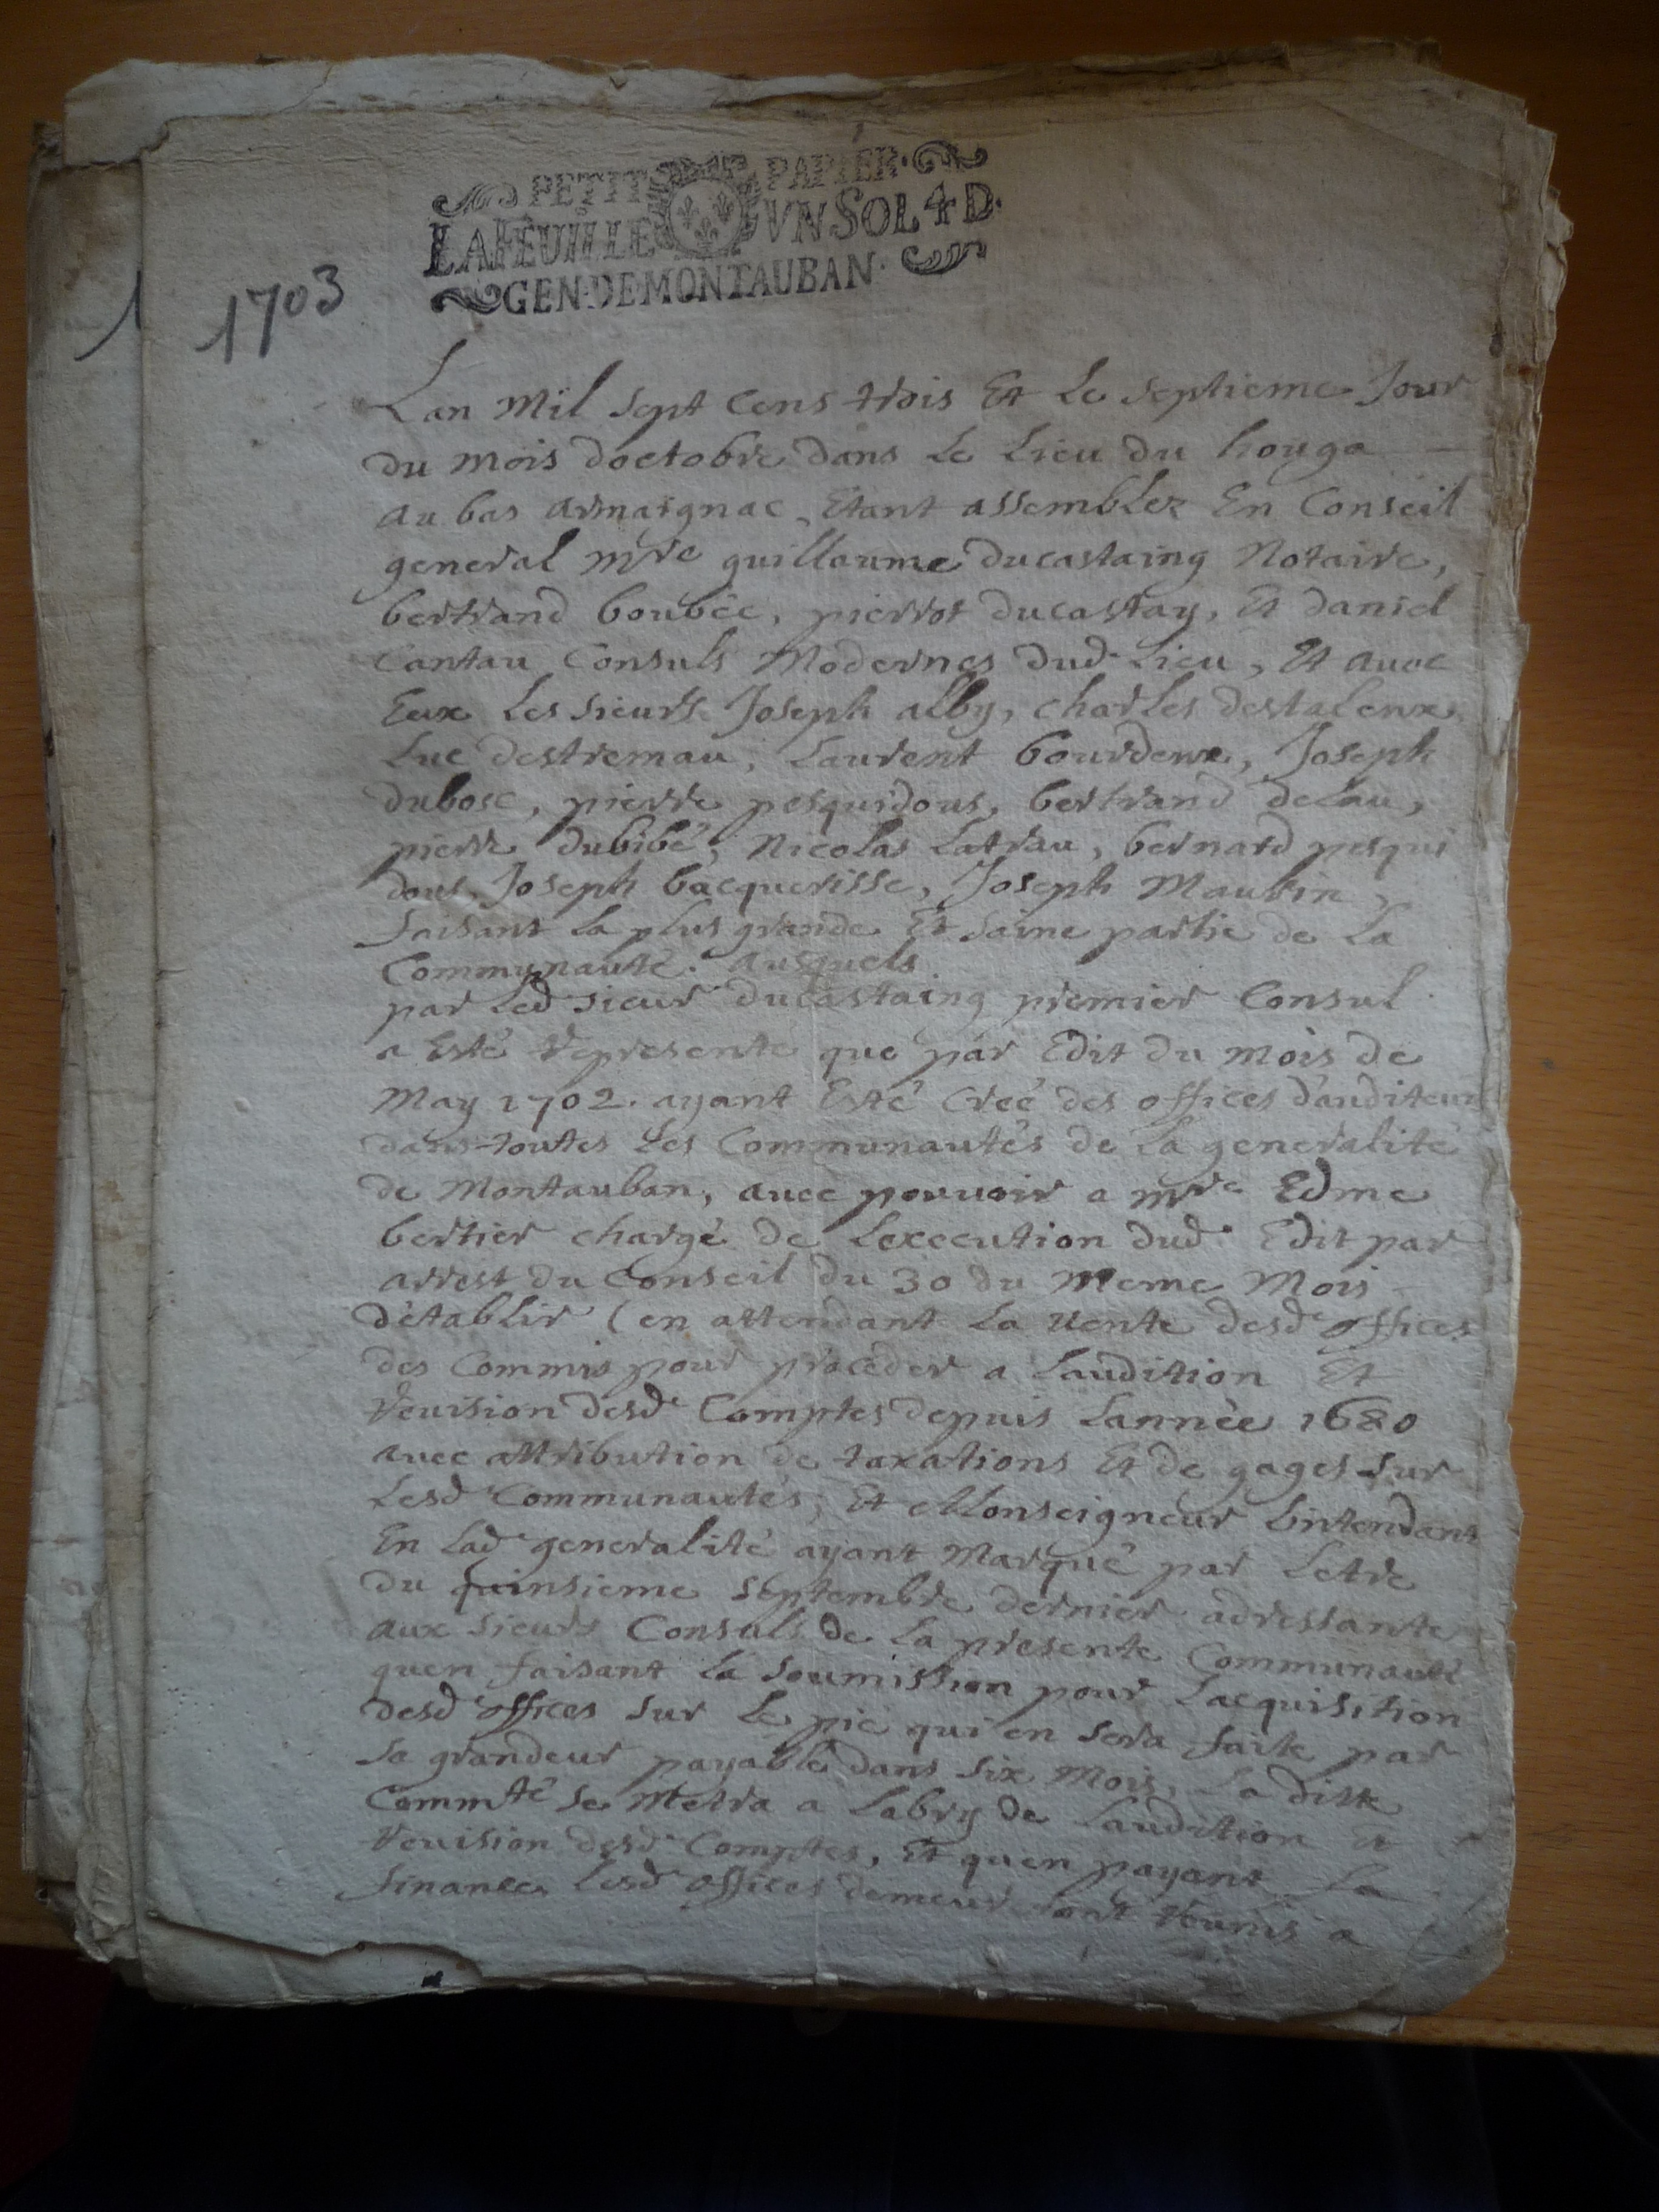 PETIT PAPIER.
LAFEUILLE VN SOL 4 D.
GEN. DE MONTAUBAN.
1703
Lan Mil sept cens trois Et Le septieme Jour
du mois doctobre dans Le Lieu du houga
au bas armaignac, Etant assemblez En Conseil
general mre guillaume ducastaing Notaire,
bertrand boubèe, pierrot ducastay, Et daniel
Cantau Consuls Modernes dud. Lieu, Et avec
Eux Les sieurs Joseph alby, charles destaleux
Luc destremau, Laurent bourdeux, Joseph
dubosc, pierre pesquidous, bertrand delau,
pierre dubibé, Nicolas Latrau, bernard pesqui
dous, Joseph bacquerisse, Joseph Maubin,
faisant La plus grande Et saine partie de La
Communauté. Ausquels
par Led sieur ducastaing premier Consul
a Esté representé que par Edit du mois de
May 1702. ayant Esté Creé des offices dauditeur
dans toutes Les Communautés de La generalité
de Montauban, avec pouvoir a mre Edme
bertier chargé de Lexecution dud. Edit par
arrest du Conseil du 30 du meme Mois
détablir (en attendant La vente desd offices
des Commis pour proceder a Laudition Et
revision desd. Comptes depuis Lannèe 1680
avec attribution de taxations Et de gages sur
Lesd Communautés; Et Monseigneur Lintendant
En Lad generalité ayant Marqué par Letre
du quinsieme septembre dernier adressante
aux sieurs Consuls de La presente Communauté
quen faisant La soumission pour Lacquisition
desd offices sur Le pié qui en sera faite par
sa grandeur payable dans six Mois, La dite
Commté se Metra a Labry de Laudition et
revision desd. Comptes, Et quen payant La
finance Lesd offices demeurront reunis a